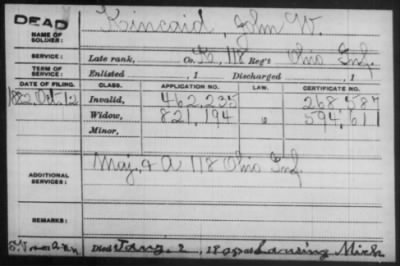 DEAD
NAME OF SOLDIER: Kincaid, John W.
SERVICE: Late rank, Co. K, 118 Reg't Ohio Inf.
TERM OF SERVICE: Enlisted , 1 Discharged , 1
DATE OF FILING. CLASS. APPLICATION NO. LAW. CERTIFICATE NO.
1882 Oct. 12 Invalid, 462,235 268,587
Widow, 821,194 594,611
Minor,
ADDITIONAL SERVICES: Maj. & A 118 Ohio Inf.
REMARKS:
Died Jany. 2, Lansing Mich